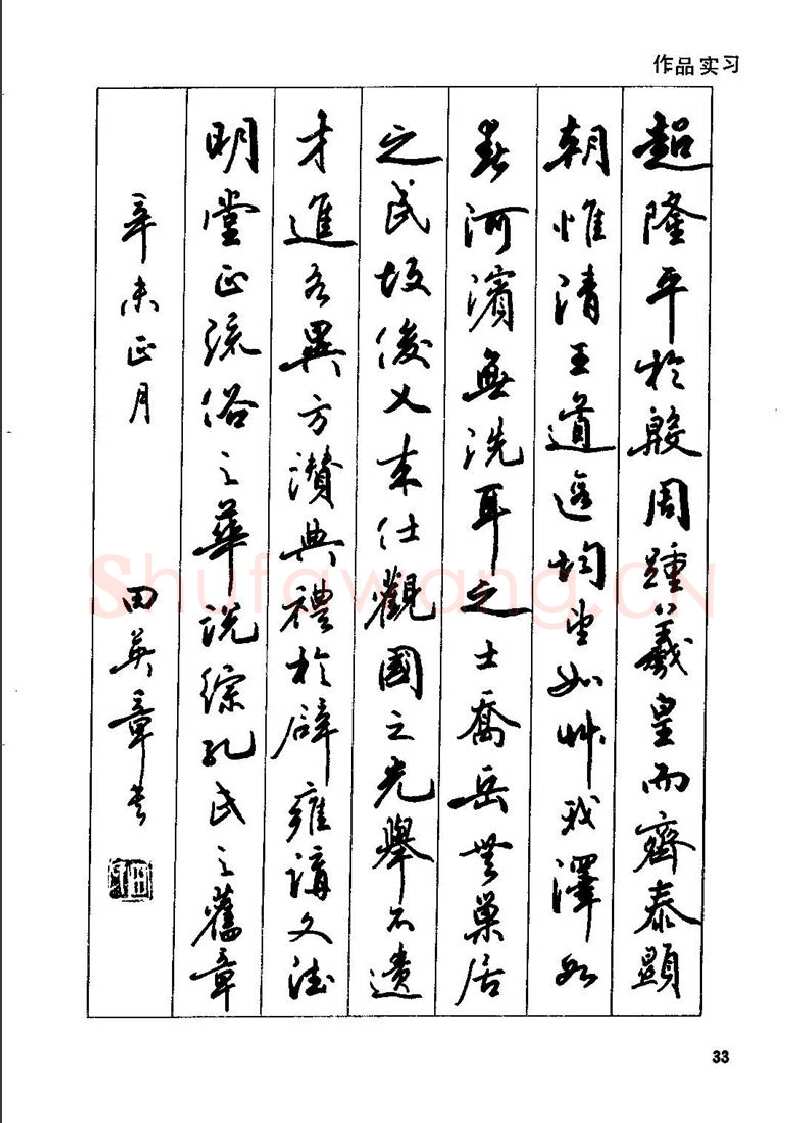 作品实习
超隆平於殷周踵羲皇而齊泰顯
朝惟清王道遐均望如艸我澤如
春河濱無洗耳之士喬岳無巢居
之民故俊乂来仕觀國之光舉不遺
才進各異方讃典禮於辟雍講文德
明堂正流俗之華説綜孔氏之舊章
辛未正月 田英章书
Shufawang.CN
33